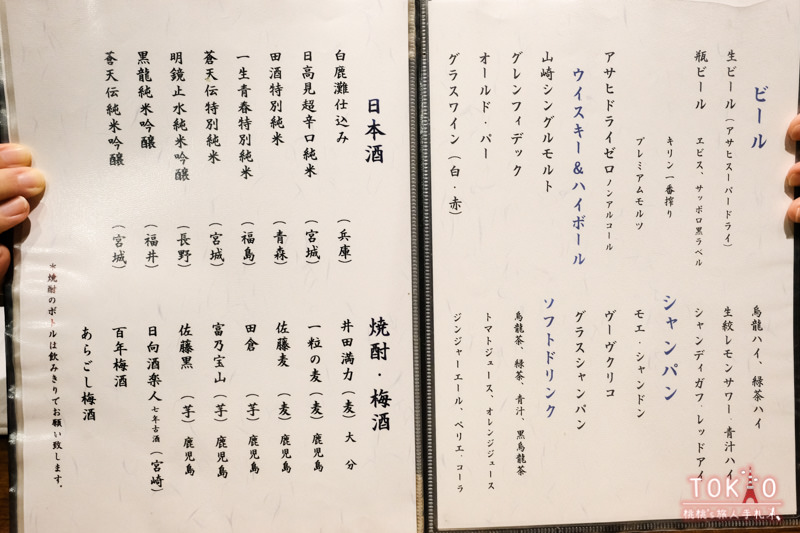 ビール
生ビール（アサヒスーパードライ）
瓶ビール　エビス、サッポロ黒ラベル
キリン一番搾り
プレミアムモルツ
アサヒドライゼロ ノンアルコール
ウイスキー&ハイボール
山崎シングルモルト
グレンフィデック
オールド・パー
グラスワイン（白・赤）
烏龍ハイ、緑茶ハイ
生絞レモンサワー・青汁ハイ
シャンディガフ・レッドアイ
シャンパン
モエ・シャンドン
ヴーヴクリコ
グラスシャンパン
ソフトドリンク
烏龍茶、緑茶、青汁、黒烏龍茶
トマトジュース、オレンジジュース
ジンジャーエール、ペリエ・コーラ
日本酒
白鹿灘仕込み（兵庫）
日高見超辛口純米（宮城）
田酒特別純米（青森）
一生青春特別純米（福島）
蒼天伝特別純米（宮城）
明鏡止水純米吟醸（長野）
黒龍純米吟醸（福井）
蒼天伝純米吟醸（宮城）
焼酎・梅酒
井田満力（麦）大分
一粒の麦（麦）鹿児島
佐藤麦（麦）鹿児島
田倉（芋）鹿児島
富乃宝山（芋）鹿児島
佐藤黒（芋）鹿児島
日向酒楽人 七年古酒（宮崎）
百年梅酒
あらごし梅酒
＊焼酎のボトルは飲みきりでお願い致します。
TOKYO
桃桃's旅人手札